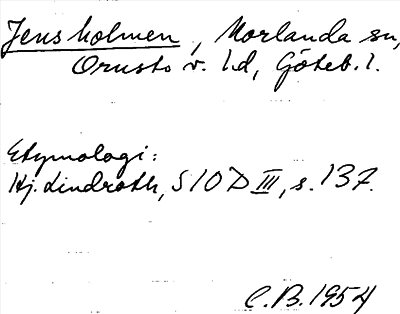 Jensholmen, Morlanda sn,
Orusts v. l.d, Göteb. l.
Etymologi:
Hj. Lindroth, SIOD III, s. 137.
C.B. 1954